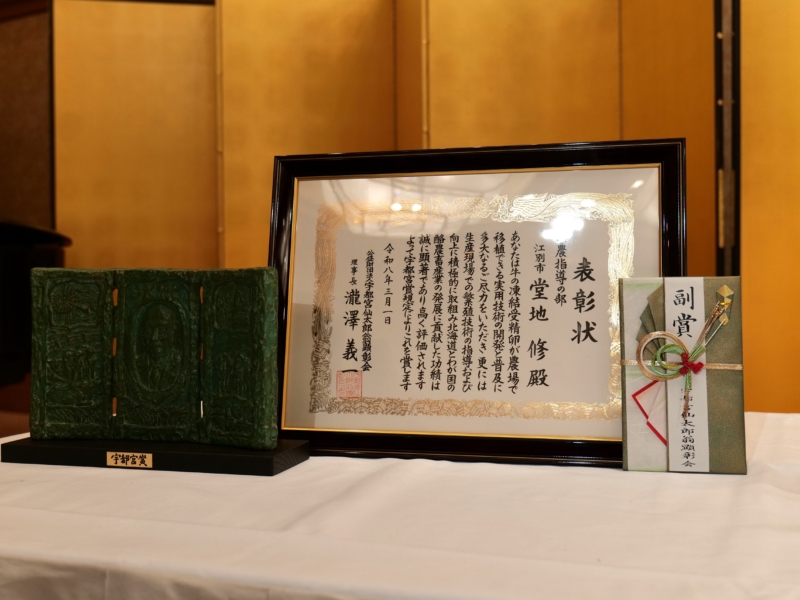 表彰状
農指導の部
江別市 堂地 修 殿
あなたは牛の凍結受精卵が農場で
移植できる実用技術の開発と普及に
多大なるご尽力をいただき更には
生産現場での繁殖技術の指導および
向上に積極的に取組み北海道とわが国の
酪農畜産業の発展に貢献した功績は
誠に顕著であり高く評価されます
よって宇都宮賞規定によりこれを賞します
令和八年三月一日
公益財団法人宇都宮仙太郎翁顕彰会
理事長 瀧澤義一
副賞
宮仙太郎翁顕彰会
宇都宮賞